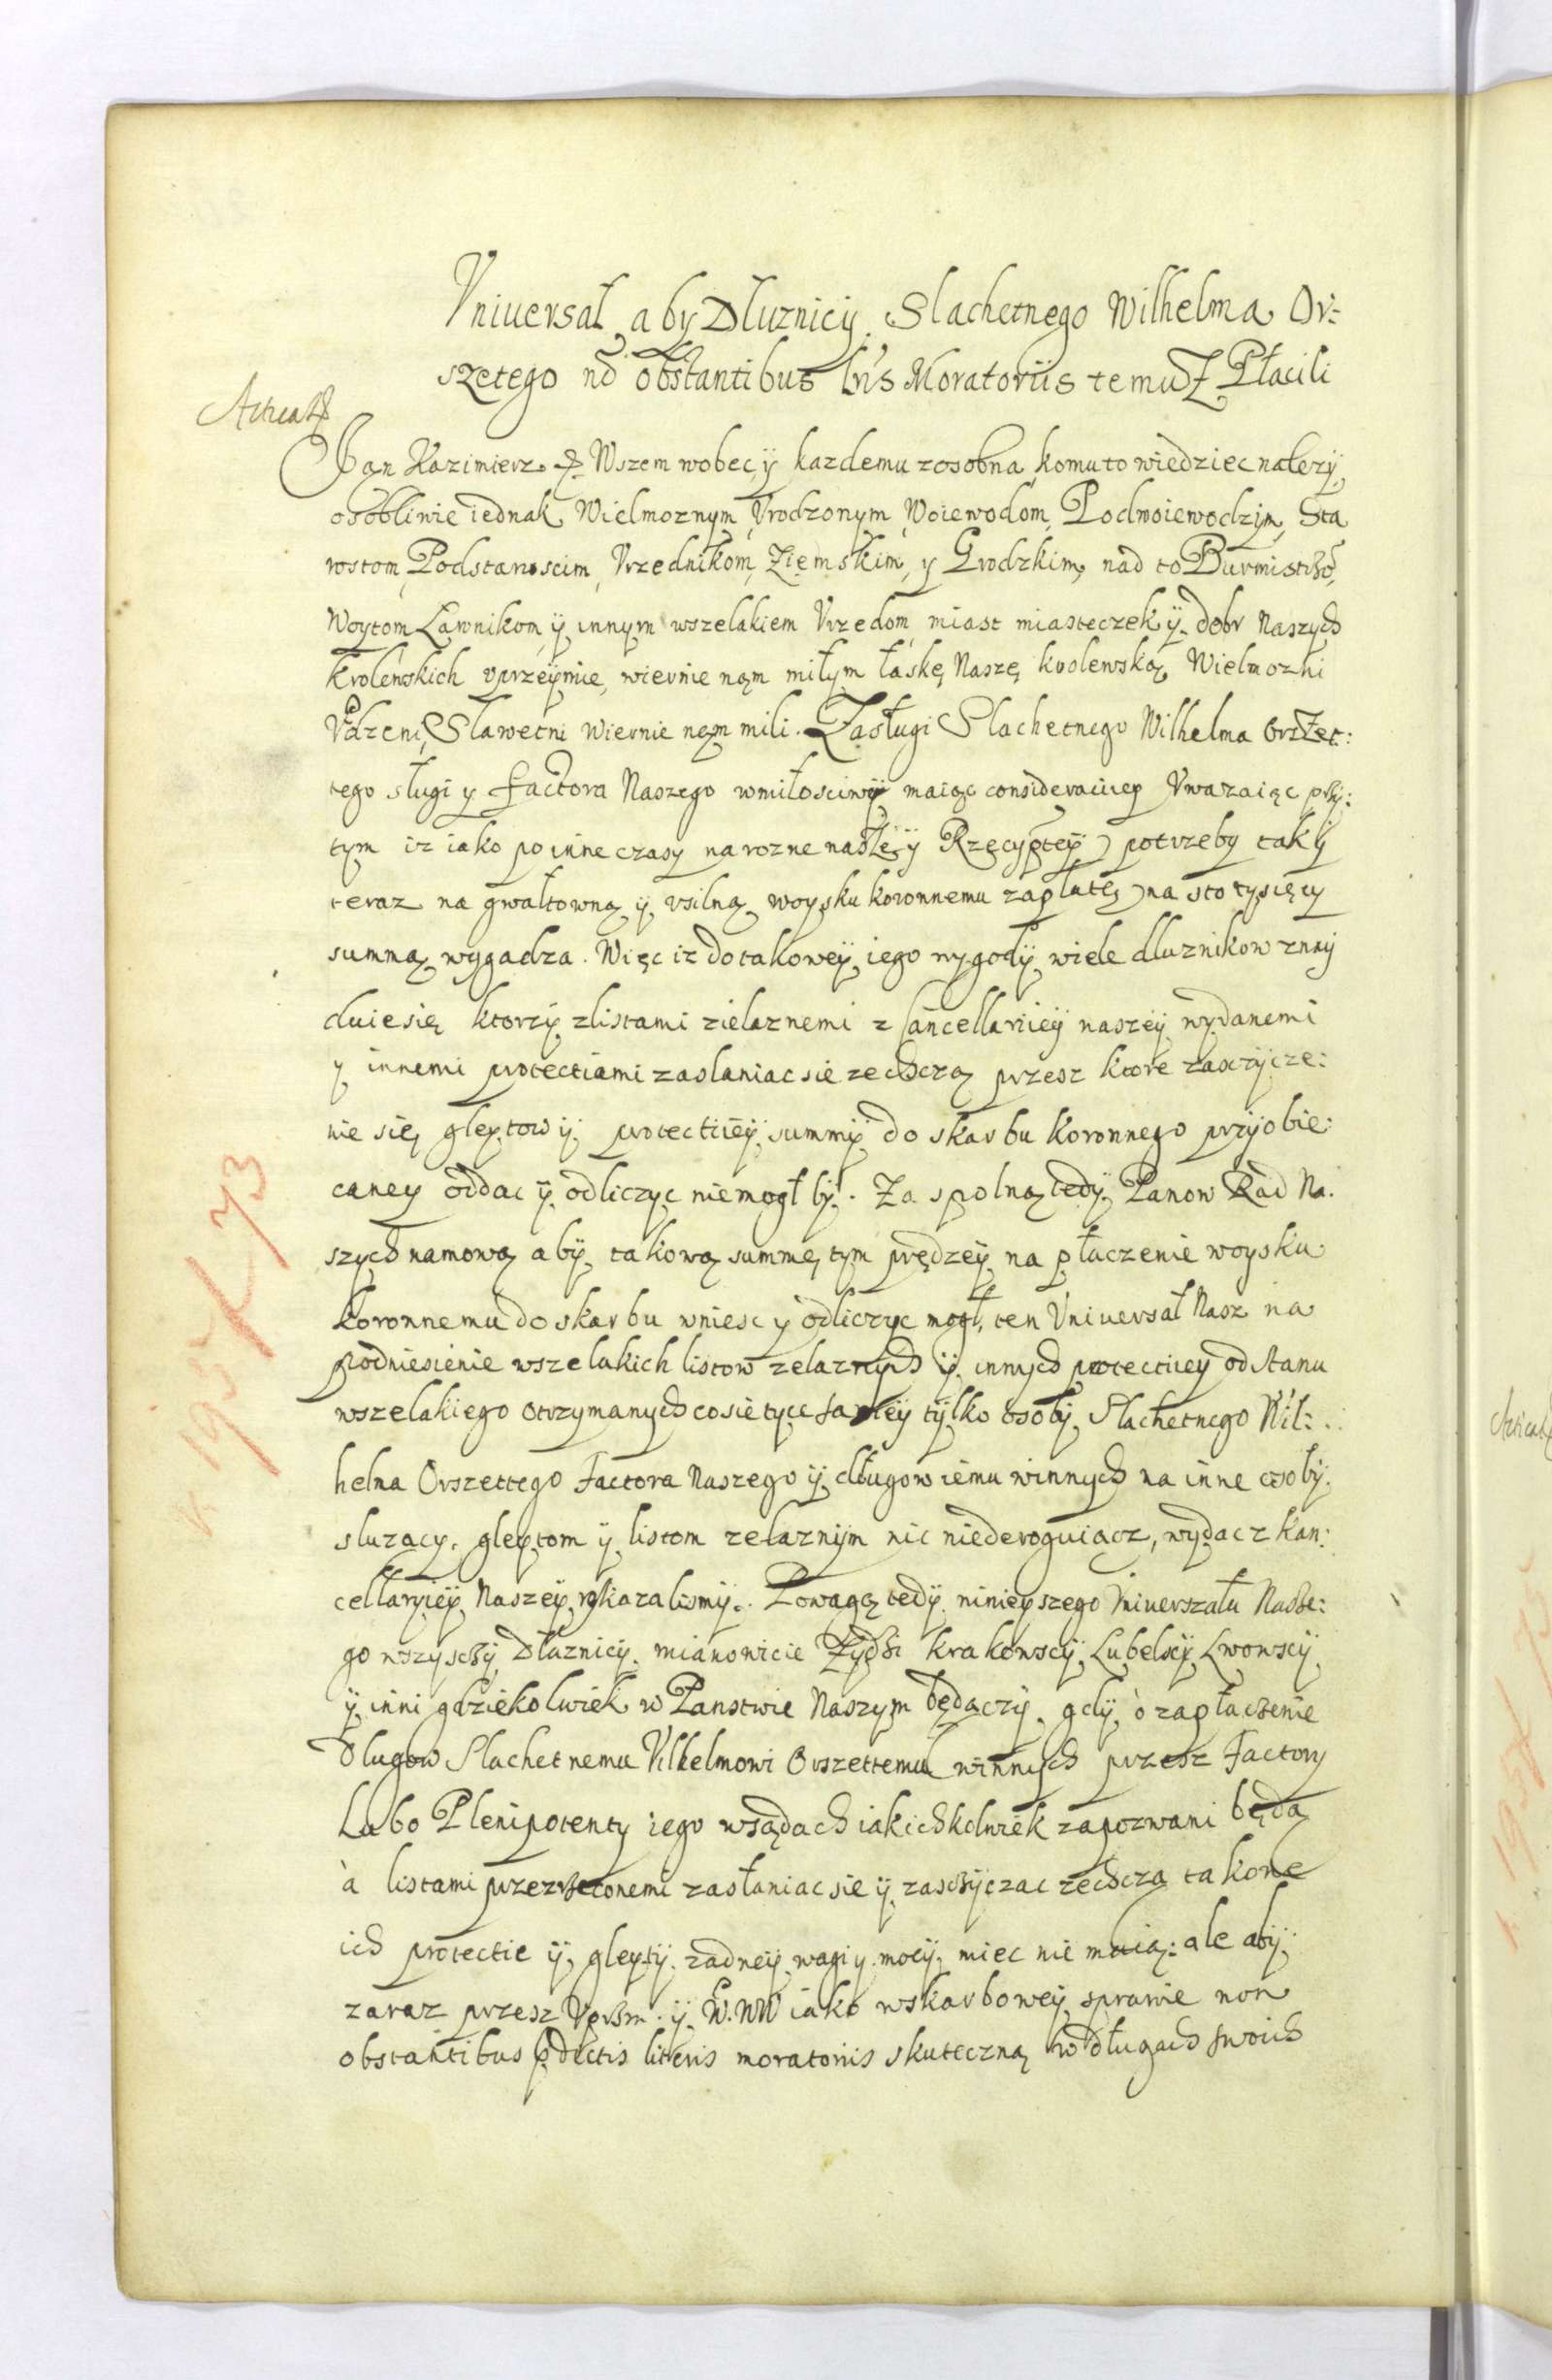 Vniuersał aby Dłuznicy Slachetnego Wilhelma Or=
szetego nō obstantibus lris Moratoriis temuż Płacili
Jan Kazimierz & Wszem wobec ÿ kazdemu zosobna komu to wiedziec nalezy
osobliwie iednak Wielmoznym Vrodzonym Woiewodom Podwoiewodzym Sta
rostom Podstaroscim Vrzednikom Ziemskim y Grodzkim nad to Burmistrzō
Woytom Ławnikom ÿ innym wszelakiem Vrzedom miast miasteczek ÿ dobr Naszych
krolewskich vprzeÿmie wiernie nąm miłym łaskę Naszę krolewską Wielmozni
Vrdzeni Sławetni wiernie nąm mili. Zasługi Slachetnego Wilhelma Orszet:
tego sługi y factora Naszego w miłosciwÿ maiąc consideratiieÿ Vwazaiąc przÿ:
tym iz iako po inne czasy na rozne naszeÿ Rzęcyptеÿ potrzeby tak ÿ
teraz na gwałtowną ÿ vsilną woysku koronnemu zapłatę na sto tysięcy
summą wygadza. Więc iz do takoweÿ iego wygodÿ wiele dłuznikow znaÿ
duie się ktorzÿ z listami zielaznemi z Cancellarÿieÿ naszeÿ wydanemi
y innemi protectiami zaslaniac sie zechczą przesz ktore zasczÿcze:
nie się gleytow ÿ protectiieÿ summÿ do skarbu koronnego przÿobie:
caney oddac ÿ odliczyc niemogł bÿ. Za spolną tedÿ Panow Rad Na:
szych namową abÿ takową summę tym prędzeÿ na płaczenie woysku
koronnemu do skarbu wniesc ÿ odliczyc mogł, ten Vniuersał Nasz na
podniesienie wszelakich listow zelaznÿch ÿ innych protectiieÿ od Stanu
wszelakiego otrzymanych co sie tÿce sameÿ tÿlko osobÿ Slachetnego Wil:
helma Orszettego Factora Naszego ÿ długow iemu winnych na inne osobÿ
sluzacy. gleytom ÿ listom zelaznÿm nic niederoguiącz, wydac z kan:
cellarÿieÿ Naszeÿ rozkazalismÿ. Powagą tedÿ ninieyszego Vniuerszału Nasze:
go wszyscÿ Dłuznicÿ mianowicie Żydzi krakowscÿ Lubelscÿ Lwowscÿ
ÿ inni gdziekolwiek w Panstwie Naszym będączÿ gdÿ o zapłaczenie
Dlugow Slachetnemu Vilhelmowi Orszettemu winnÿch przesz Factory
Lubo Plenipotenty iego w sądach iakichkolwiek zapozwani będą
à listami przerzeczonemi zasłaniac sie ÿ zasczÿczac zechczą takowe
ich protectie ÿ gleytÿ zadneÿ wagi y mocÿ miec nie maią: ale abÿ
zaraz przesz Vprzm. ÿ W. WW iako w skarboweÿ sprawie non
obstantibus pdictis literis moratoriis skuteczną w długach swoich